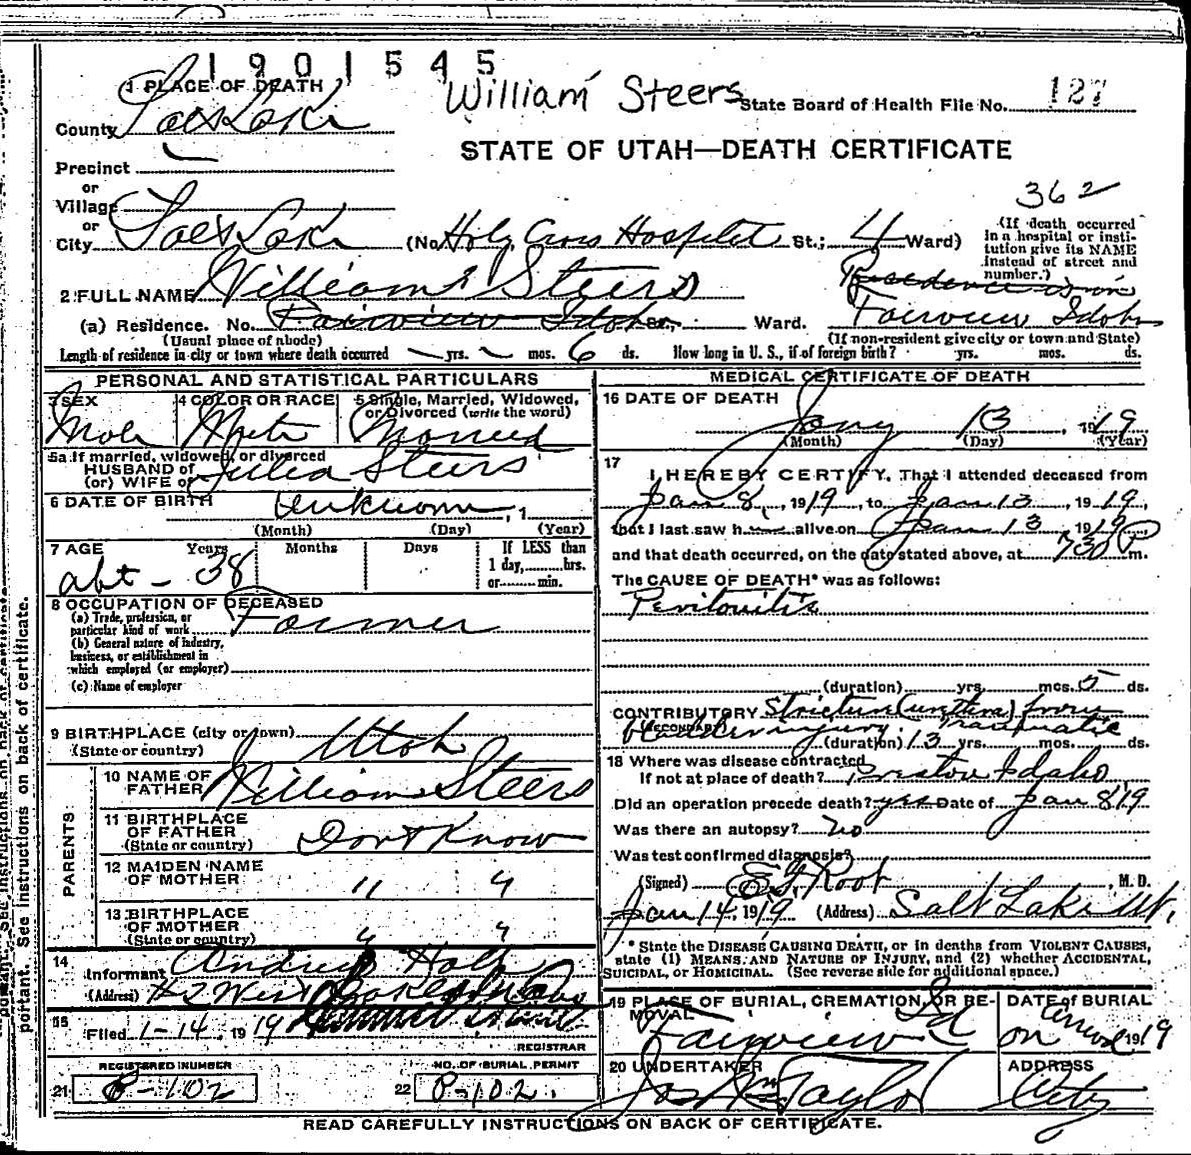 1901545
William Steers
State Board of Health File No. 127
1 PLACE OF DEATH
County Salt Lake
STATE OF UTAH—DEATH CERTIFICATE
Precinct
or
Village
or
City Salt Lake (No. Holy Cross Hospital St.; 4 Ward)
362
(If death occurred in a hospital or institution give its NAME instead of street and number.)
2 FULL NAME William Steers
Residence is in
(a) Residence. No. Fairview Idaho St. Ward. Fairview Idaho
(Usual place of abode) (If non-resident give city or town and State)
Length of residence in city or town where death occurred yrs. mos. 6 ds. How long in U. S., if of foreign birth? yrs. mos. ds.
PERSONAL AND STATISTICAL PARTICULARS
3 SEX Male
4 COLOR OR RACE White
5 Single, Married, Widowed, or Divorced (write the word) Married
5a If married, widowed, or divorced
HUSBAND of
(or) WIFE of Julia Steers
6 DATE OF BIRTH Unknown, 1
(Month) (Day) (Year)
7 AGE Years Months Days If LESS than 1 day, hrs. or min.
abt - 38
8 OCCUPATION OF DECEASED
(a) Trade, profession, or particular kind of work Farmer
(b) General nature of industry, business, or establishment in which employed (or employer)
(c) Name of employer
9 BIRTHPLACE (city or town)
(State or country) Utah
PARENTS
10 NAME OF FATHER William Steers
11 BIRTHPLACE OF FATHER (State or country) Dont Know
12 MAIDEN NAME OF MOTHER " "
13 BIRTHPLACE OF MOTHER (State or country) " "
14
Informant Andrew
(Address)
15
Filed 1-14, 1919
REGISTRAR
REGISTERED NUMBER
21 B-102
NO. OF BURIAL PERMIT
22 P-102.
MEDICAL CERTIFICATE OF DEATH
16 DATE OF DEATH
Jany 13, 1919
(Month) (Day) (Year)
17
I HEREBY CERTIFY, That I attended deceased from
Jan 8, 1919, to Jan 13, 1919,
that I last saw h alive on Jan 13, 1919
and that death occurred, on the date stated above, at 730 P m.
The CAUSE OF DEATH* was as follows:
Peritonitis
(duration) yrs. mos. 5 ds.
CONTRIBUTORY Stricture (urethra) from
(SECONDARY) bladder injury. Traumatic
(duration) 13 yrs. mos. ds.
18 Where was disease contracted
If not at place of death? Preston Idaho
Did an operation precede death? yes Date of Jan 8 19
Was there an autopsy? No
Was test confirmed diagnosis?
(Signed) E. G. Root, M. D.
Jan 14, 1919 (Address) Salt Lake Ut.
* State the DISEASE CAUSING DEATH, or in deaths from VIOLENT CAUSES,
state (1) MEANS AND NATURE OF INJURY, and (2) whether ACCIDENTAL,
SUICIDAL, or HOMICIDAL. (See reverse side for additional space.)
19 PLACE OF BURIAL, CREMATION, OR REMOVAL
Fairview Id
DATE of BURIAL
on 1919
20 UNDERTAKER
Jos Wm Taylor
ADDRESS
City
READ CAREFULLY INSTRUCTIONS ON BACK OF CERTIFICATE.
portant. See instructions on back of certificate.